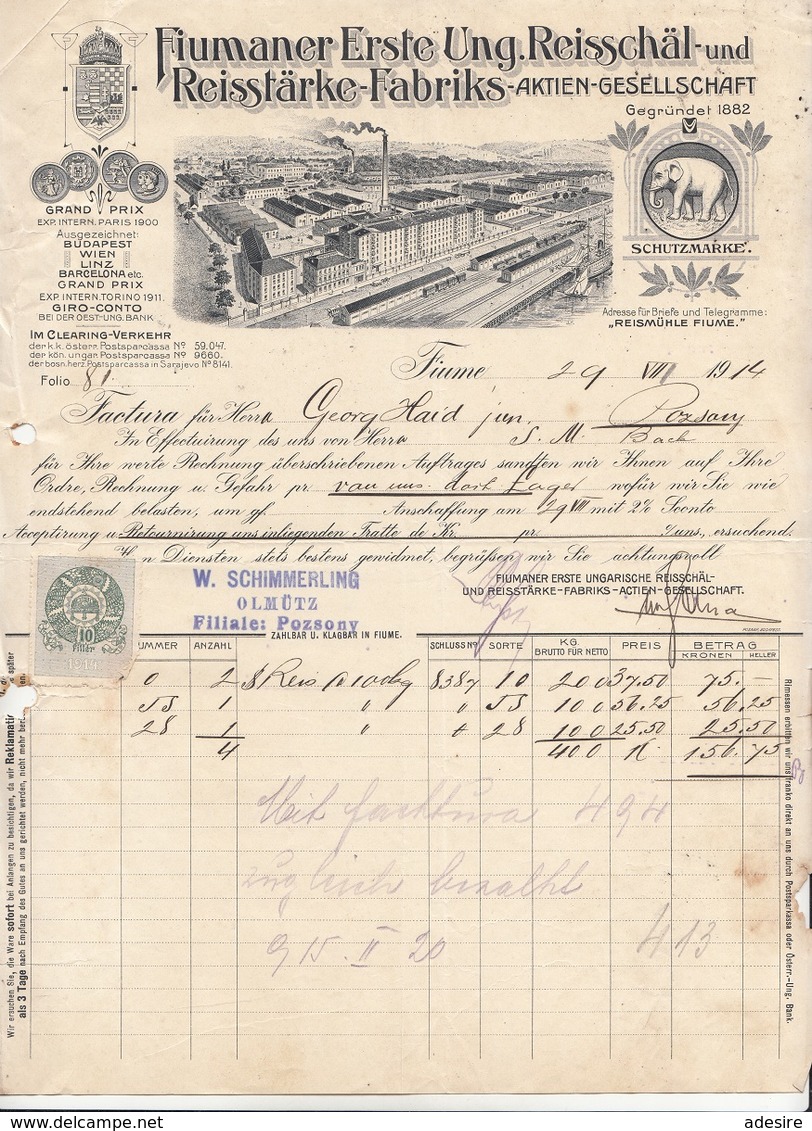 Fiumaner Erste Ung. Reisschäl- und
Reisstärke-Fabriks-AKTIEN-GESELLSCHAFT
Gegründet 1882
GRAND PRIX
EXP. INTERN. PARIS 1900
Ausgezeichnet:
BUDAPEST
WIEN
LINZ
BARCELONA etc.
GRAND PRIX
EXP. INTERN. TORINO 1911.
GIRO-CONTO
BEI DER OEST-UNG. BANK
SCHUTZMARKE.
Adresse für Briefe und Telegramme:
„REISMÜHLE FIUME."
IM CLEARING-VERKEHR
der k.k. österr. Postsparcassa No 59.047.
der kön. ungar. Postsparcassa No 9660.
der bosn. herz. Postsparcassa in Sarajevo No 8141.
Folio 81
Fiume, 29 VIII 1914
Factura für Herrn Georg Haid jun. Pozsony
In Effectuirung des uns von Herrn S. M. Bach
für Ihre werte Rechnung überschriebenen Auftrages sandten wir Ihnen auf Ihre
Ordre, Rechnung u. Gefahr pr. von uns. dort. Lager wofür wir Sie wie
endstehend belasten, um gfl. Anschaffung am 29 VIII mit 2% Sconto
Acceptirung u. Retournirung uns inliegenden Tratte de Kr. pr. uns, ersuchend.
Ihren Diensten stets bestens gewidmet, begrüßen wir Sie achtungsvoll
FIUMANER ERSTE UNGARISCHE REISSCHÄL-
UND REISSTÄRKE-FABRIKS-ACTIEN-GESELLSCHAFT.
W. SCHIMMERLING
OLMÜTZ
Filiale: Pozsony
10
fillér
1914
ZAHLBAR U. KLAGBAR IN FIUME.
UMMER ANZAHL SCHLUSS No SORTE KG. BRUTTO FÜR NETTO PREIS BETRAG KRONEN HELLER
0 2 S Reis à 100 kg 8387 10 200 37.50 75.—
JJ 1 " " JJ 100 56.25 56.25
28 1 " " 28 100 25.50 25.50
4 400 K 156.75
Mit facktura 494
zugleich bezahlt
915. II 20 413
Wir ersuchen Sie, die Ware sofort bei Anlangen zu besichtigen, da wir Reklamationen später
als 3 Tage nach Empfang des Gutes an uns gerichtet werden, nicht mehr
Rimessen erbitten wir uns franko direkt an uns durch Postsparkasse oder Österr.-Ung. Bank.
www.delcampe.net
adesire